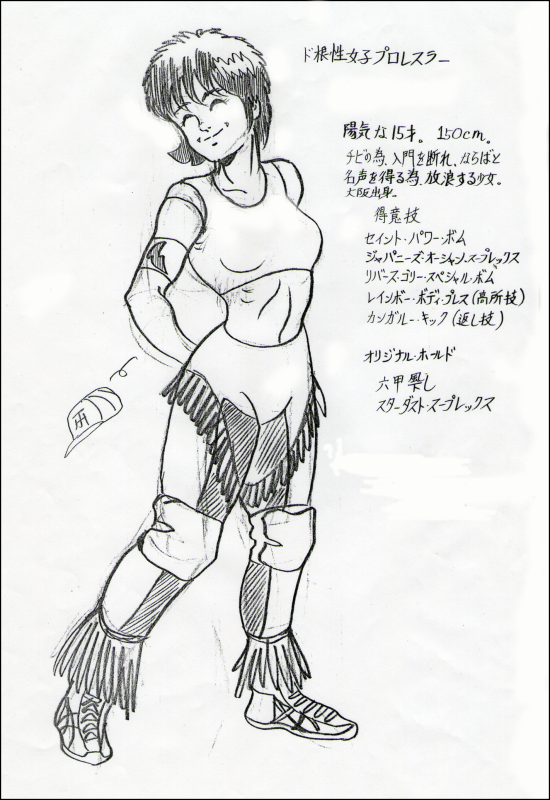 ド根性女子プロレスラー
陽気な15才。 150cm。
チビの為、入門を断れ、ならばと
名声を得る為、放浪する少女。
大阪出身。
得意技
セイント・パワー・ボム
ジャパニーズ・オーシャン・スープレックス
リバース・ゴリー・スペシャル・ボム
レインボー・ボディ・プレス(高所技)
カンガルー・キック(返し技)
オリジナル・ホールド
六甲し
スターダスト・スープレックス